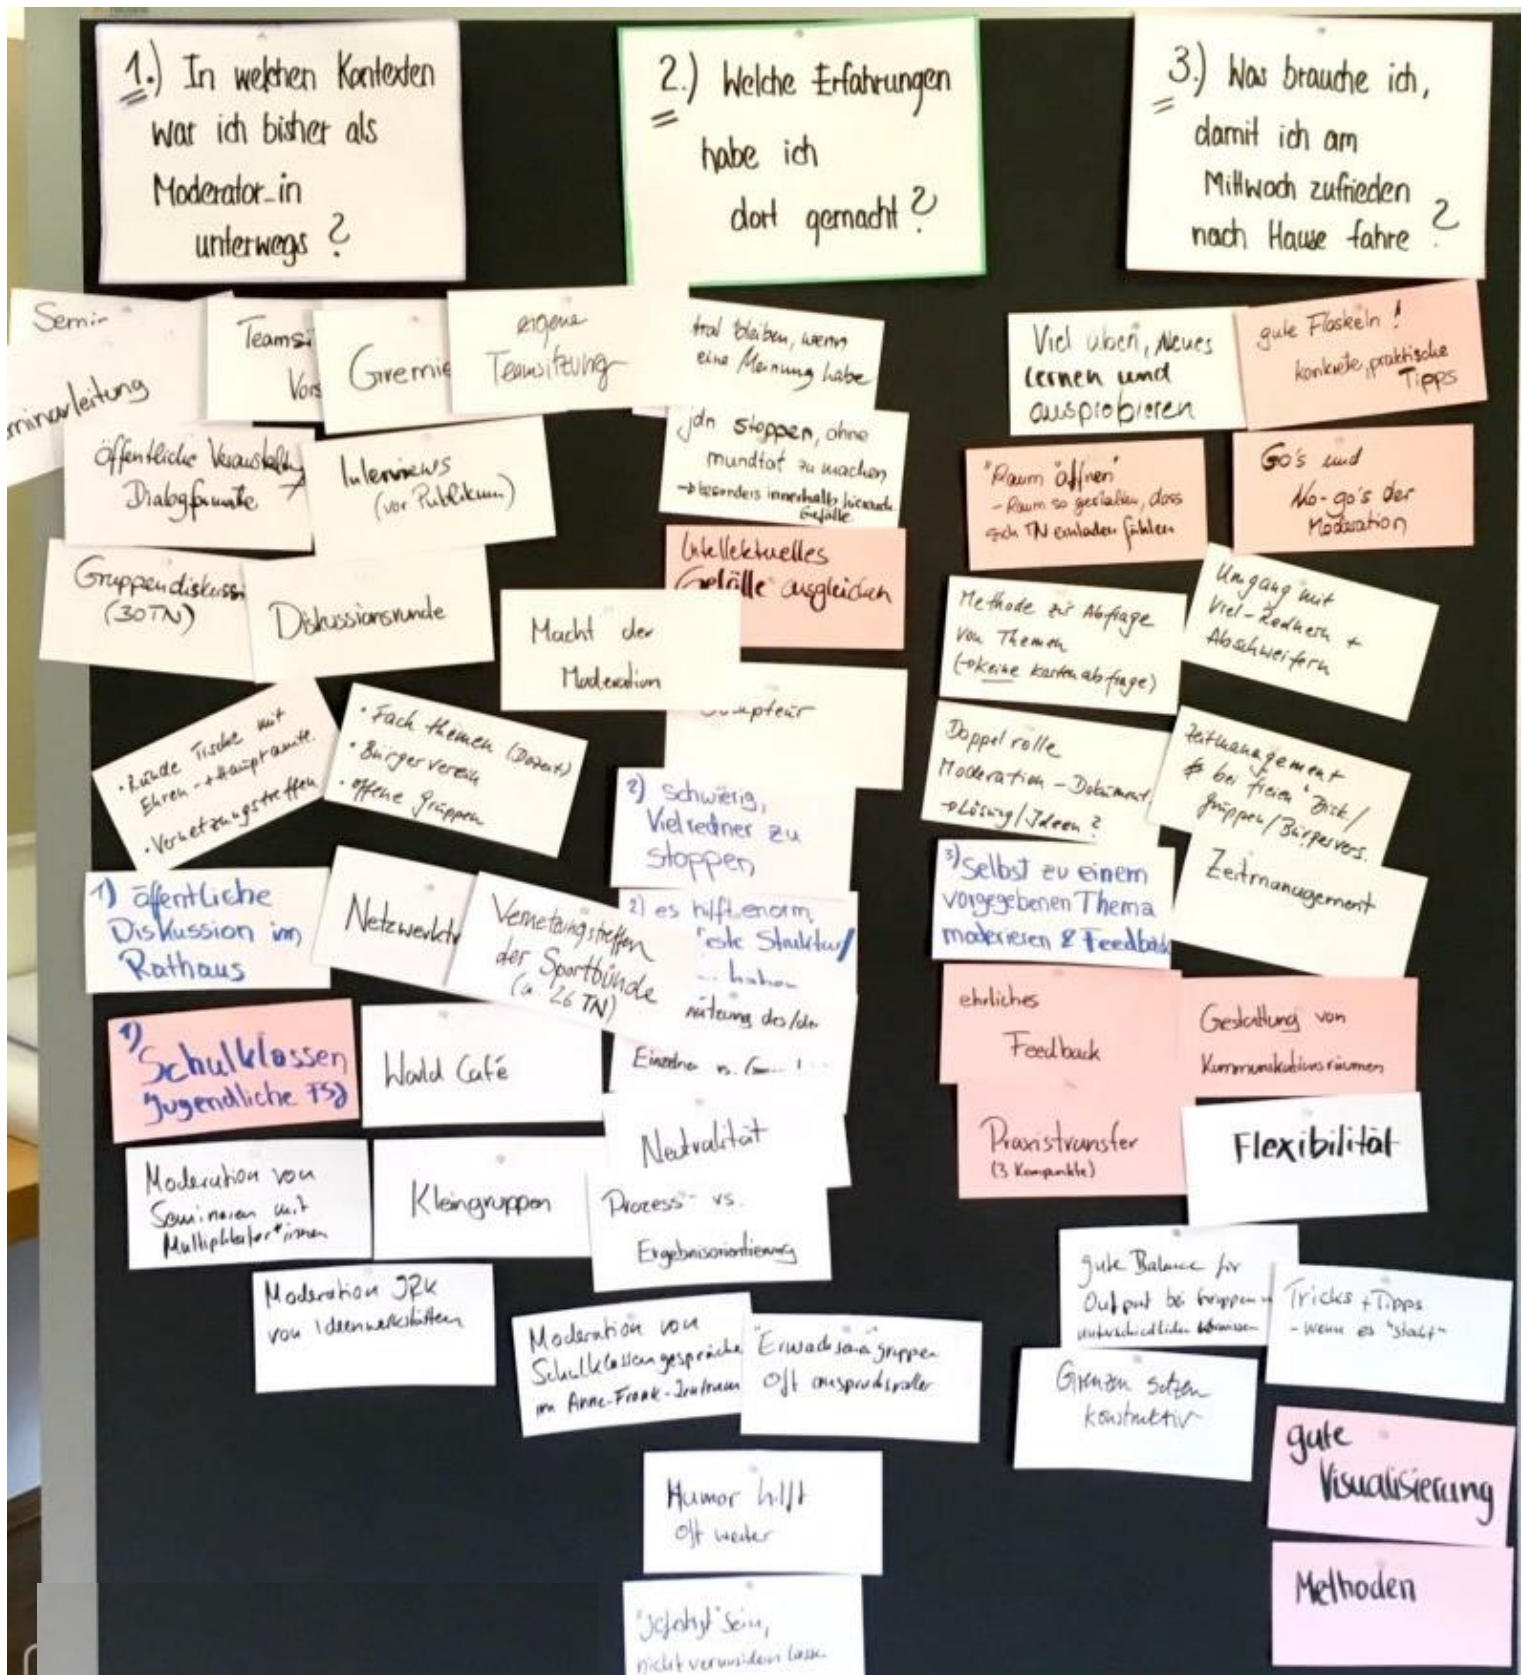 1.) In welchen Kontexten
war ich bisher als
Moderator_in
unterwegs ?
Semin-
minarleitung
Teamsi
Vors
Gremie
eigene
Teamsitzung
öffentliche Veranstaltung
Dialogformate
Interviews
(vor Publikum)
Gruppendiskussi
(30TN)
Diskussionsrunde
• Runde Tische mit
Ehren- + Hauptamtl.
• Vernetzungstreffen
• Fach themen (Dozent)
• Bürgerverein
• offene Gruppen
1) öffentliche
Diskussion im
Rathaus
Netzwerktr
Vernetzungstreffen
der Sportbünde
(ca. 26 TN)
1)
Schulklassen
Jugendliche FSJ
World Café
Moderation von
Seminaren mit
Multiplikator*innen
Kleingruppen
Moderation JRK
von Ideenwerkstätten
2.) Welche Erfahrungen
habe ich
dort gemacht ?
tral bleiben, wenn
eine Meinung habe
jdn stoppen, ohne
mundtot zu machen
→ besonders innerhalb hierarch.
Gefälle
Intellektuelles
Gefälle ausgleichen
Macht der
Moderation
pteur
2) schwierig,
Vielredner zu
stoppen
2) es hilft enorm,
este Struktur/
haben
nützung des/der
Einzelnen
Neutralität
Prozess- vs.
Ergebnisorientierung
Moderation von
Schulklassengespräche
im Anne-Frank-Zentrum
"Erwachsene"gruppen
oft anspruchsvoller
Humor hilft
oft weiter
sein,
nicht verunsichern lassen
3.) Was brauche ich,
damit ich am
Mittwoch zufrieden
nach Hause fahre ?
Viel üben, Neues
lernen und
ausprobieren
gute Floskeln !
konkrete, praktische
Tipps
"Raum öffnen"
- Raum so gestalten, dass
sich TN einladen fühlen
Go's und
No-go's der
Moderation
Methode zur Abfrage
von Themen
(→ keine Kartenabfrage)
Umgang mit
Viel-Rednern +
Abschweifern
Doppelrolle
Moderation - Dokument.
→ Lösung/Ideen ?
Zeitmanagement
bei freien Disk/
gruppen/Bürgervers.
3) Selbst zu einem
vorgegebenen Thema
moderieren & Feedback
Zeitmanagement
ehrliches
Feedback
Gestaltung von
Kommunikationsräumen
Praxistransfer
(3 Kernpunkte)
Flexibilität
gute Balance für
Output bei Gruppen
unterschiedlichen
Tricks + Tipps
- wenn es "stockt"
Grenzen setzen
konstruktiv
gute
Visualisierung
Methoden